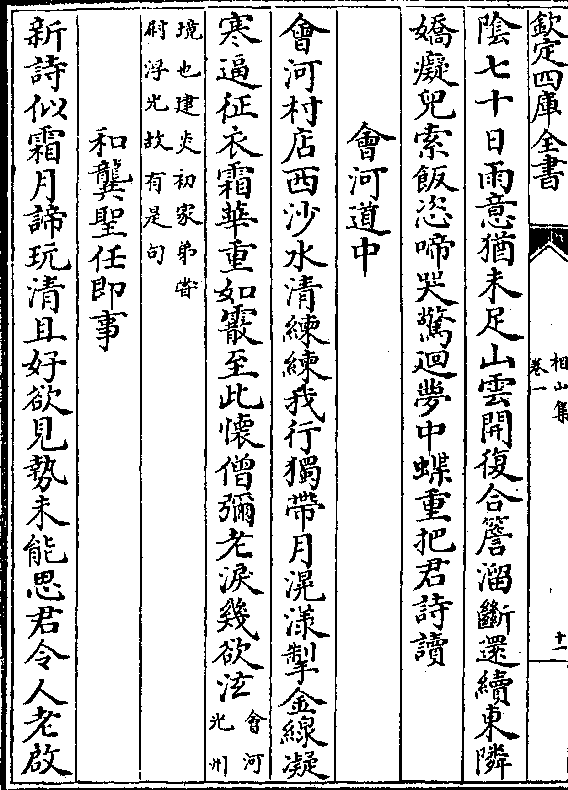 欽定四庫全書
相山集
卷一
十一
陰七十日雨意猶未足山雲開復合簷溜斷還續東隣
嬌癡兒索飯恣啼哭驚迴夢中蝶重把君詩讀
會河道中
會河村店西沙水清練練我行獨帶月滉漾掣金線凝
寒逼征衣霜華重如霰至此懷僧彌老淚幾欲泫會河光州
境也建炎初家弟嘗尉浮光故有是句
和龔聖任即事
新詩似霜月諦玩清且好欲見勢未能思君令人老啟